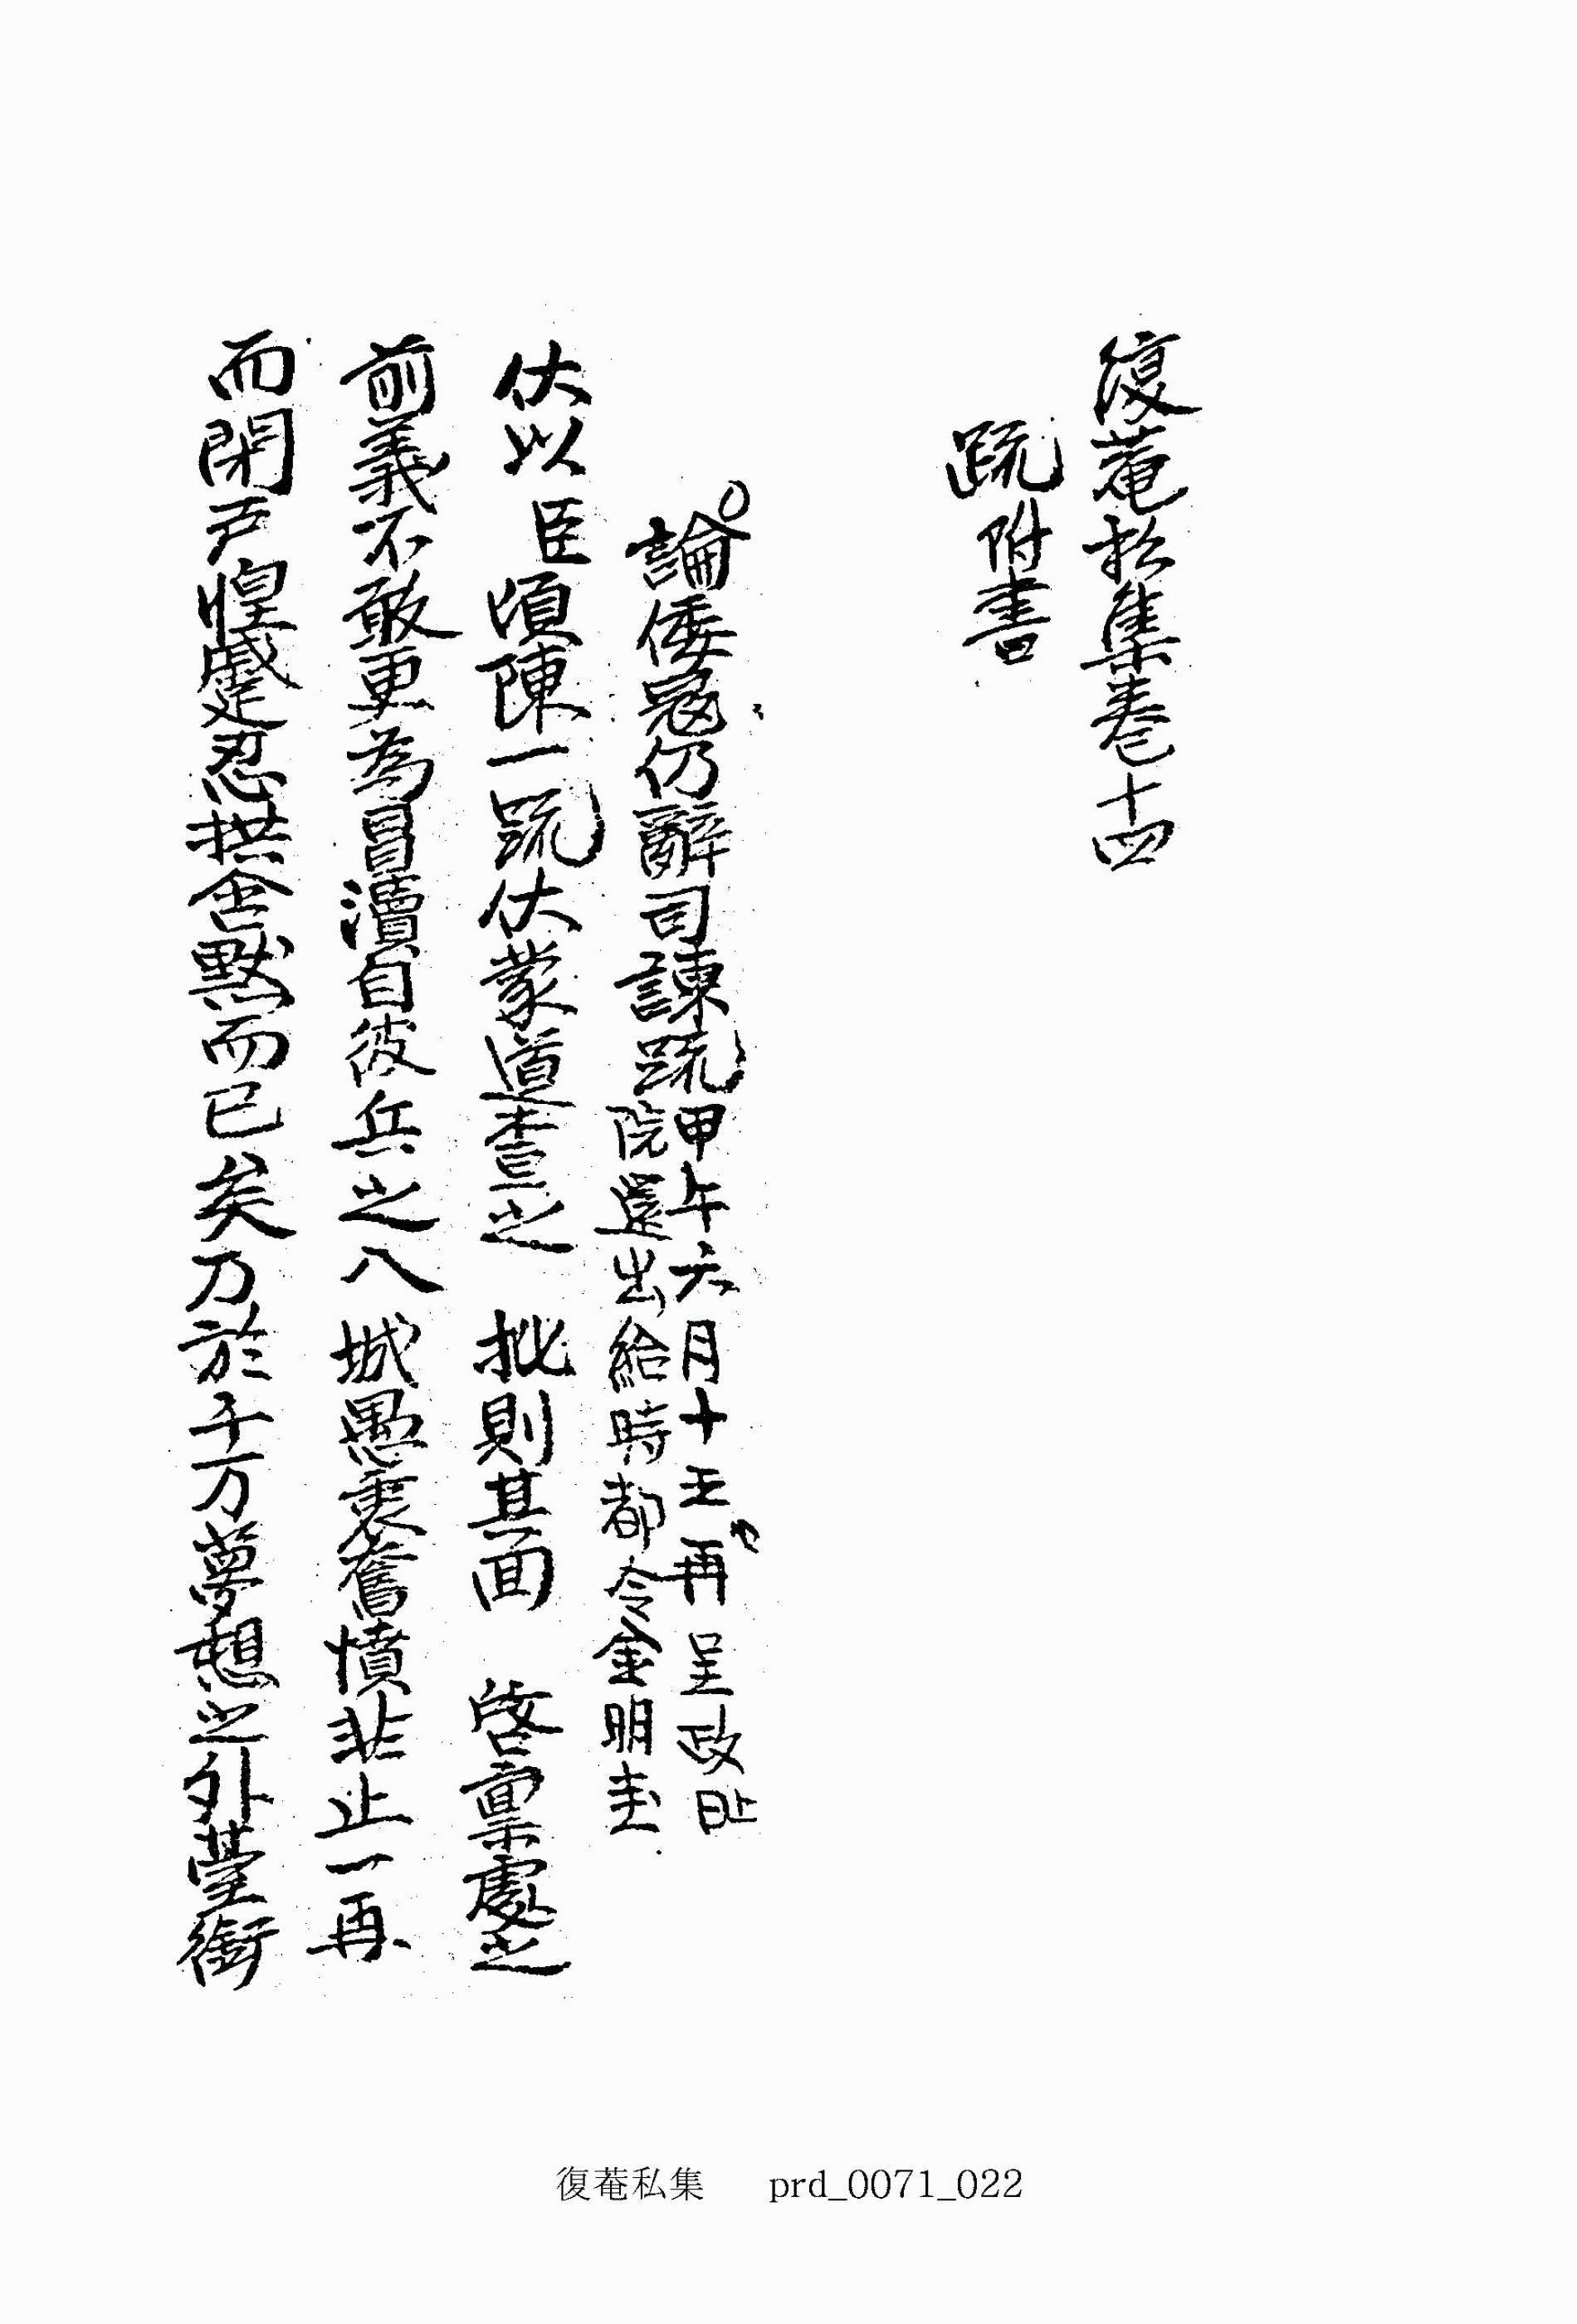 復菴私集卷十四
疏附書
論倭寇仍辭司諫疏甲午六月十五再呈政
院還出給時都令金明圭
伏以臣頃陳一疏伏蒙道查之 批則其面 啓稟處之
前義不敢更為冒瀆自彼兵之入城愚衷奮憤非止一再
而閉戶惶蹙忍拱含默而已矣乃於千万夢想之外薹銜
復菴私集 prd_0071_022